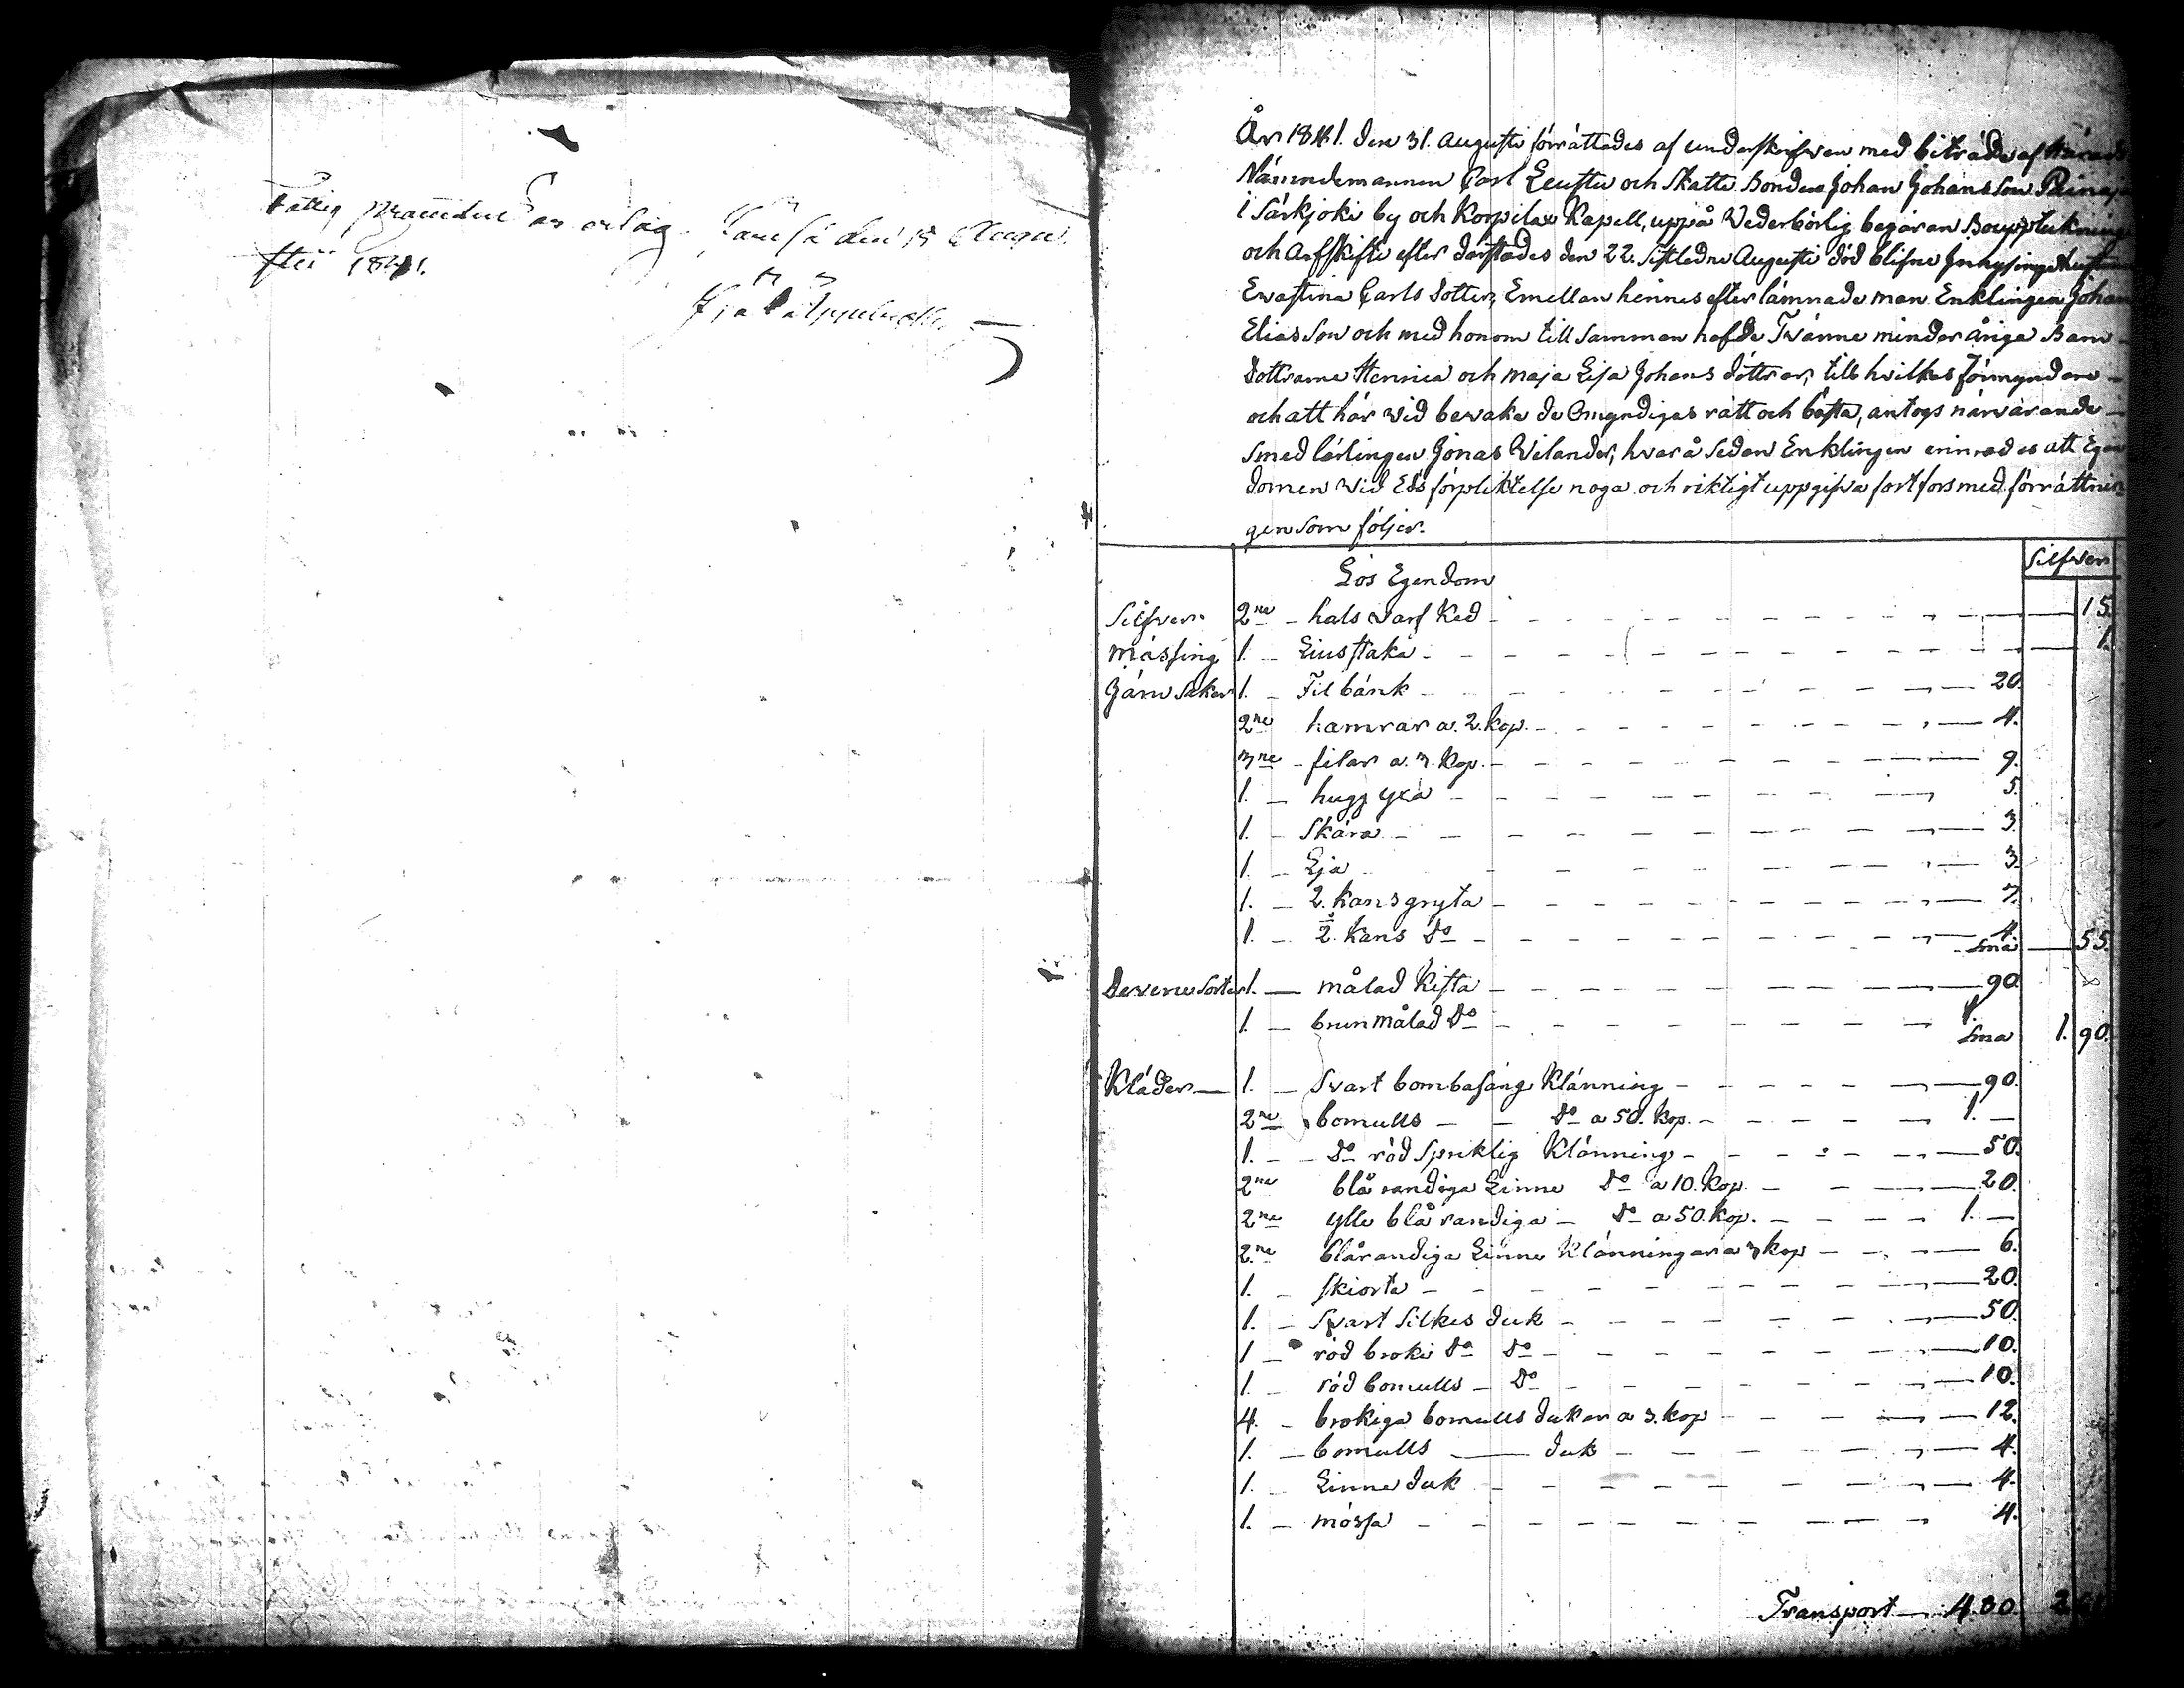 Fattig
ftei 1841.
År 1841. den 31. Augusti förrättades af underskrifven med biträde af Härads
Nämndemannen Carl Leustu och Skatte Bonden Johan Johansson
i Särkjoki by och Korpilax Kapell, uppå Vederbörlig begäran Bouppteckning
och Arfskifte efter därstädes den 22. sistledne Augusti död blifne Inhysings hustrun
Evastina Carls dotter, Emellan hennes efterlämnade man Enklingen Johan
Eliasson och med honom till samman hafde Tvänne minder åriga Barn
Dottrarne Henrica och Maja Lisa Johans döttrar, till hvilkas Förmyndare
och att här vid bevaka de Omyndigas rätt och bästa, antogs närvarande
Smedlärlingen Jonas Vilander, hvarå sedan Enklingen erinrades att Egen
domen vid Eds förpliktelse noga och riktigt uppgifva fortfors med förrättnin
gen som följer.
Silfver
Lös Egendom
Silfver 2ne hals varf Ked 15.
Mässing 1. Liusstaka 1.
Järn Saker 1. Filbänk 20.
2ne hamrar a. 2. kop. 4.
3ne filar a. 3. Kop. 9.
1. hugg yxa 5.
1. Skära 3.
1. Lja 3.
1. 2. kans gryta 7.
1. kans do 4.
Sma 55.
Deverse Sorter 1. målad Kista 90.
1. brun målad do 1.
Sma 1. 90.
Kläder 1. Svart bombasäng Klänning 90.
2ne bomulls do a 50. kop. 1.
1. do röd Spreklig Klänning 50.
2ne blå randiga Linne do a 10. Kop 20.
2ne ylle blå randiga do a 50. kop. 1.
2ne blårandiga Linne Klänningar a 3 kop 6.
1. Skiorta 20.
1. Svart Silkes duk 50.
1 röd broki do do 10.
1. röd bomulls do 10.
4. brokiga bomulls dukar a 3. kop 12.
1. bomulls duk 4.
1. Linne duk 4.
1. mössa 4.
Transport 4.80